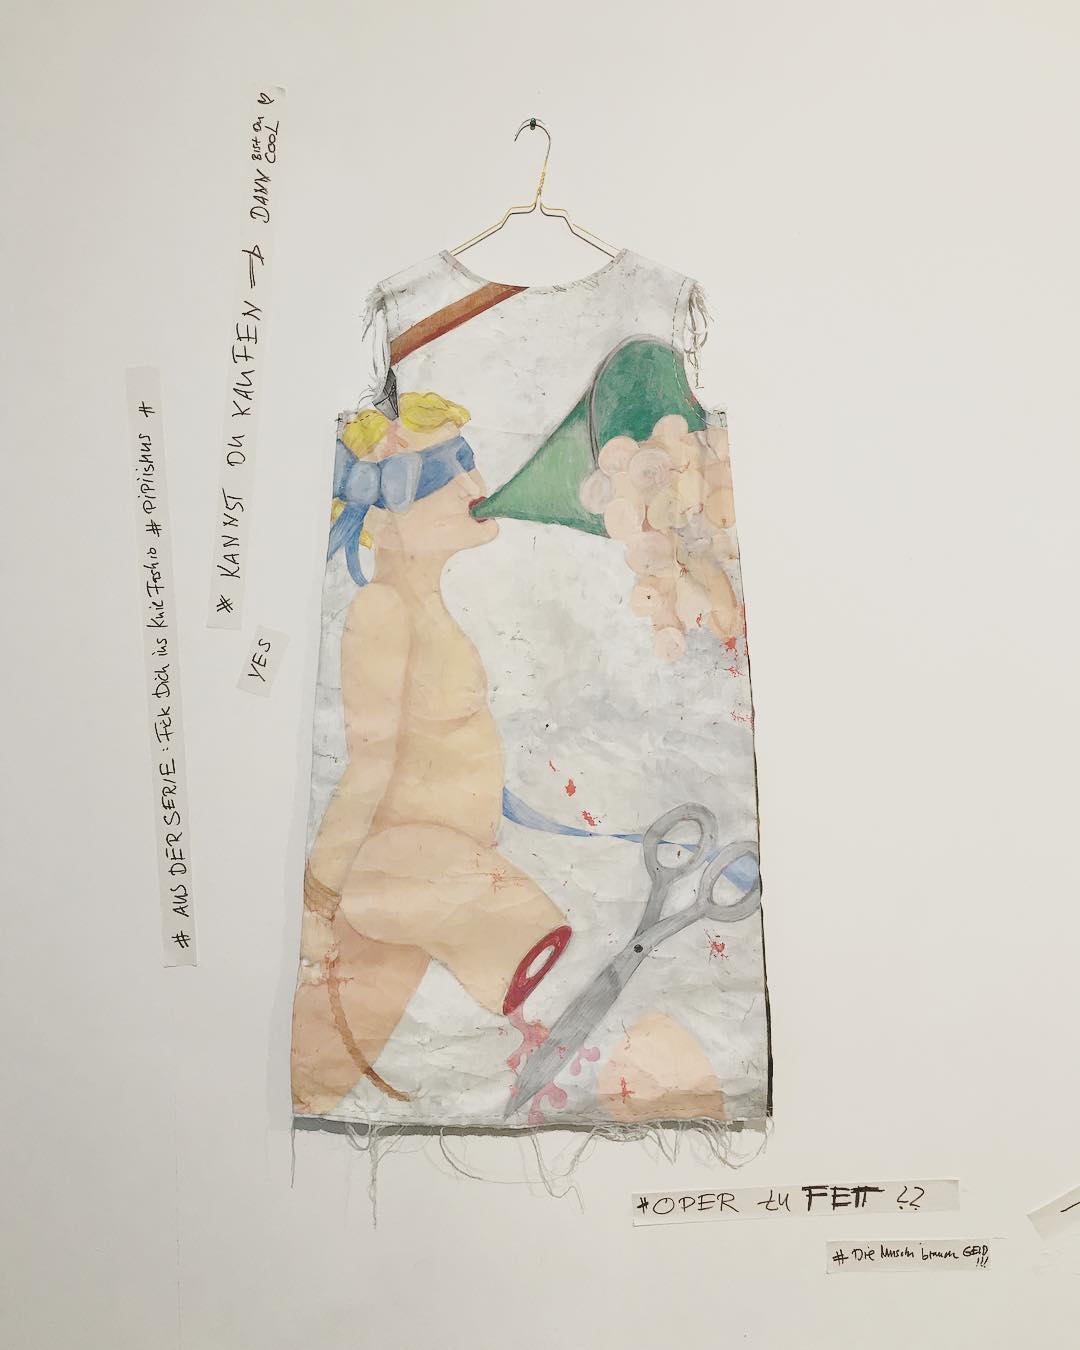 # AUS DER SERIE: Fck Dich ins Knie Fashio # PiPiismus #
# KANNST DU KAUFEN → DANN BIST DU COOL ♡
YES
#OPER zu FETT ??
# Die brauen GELD !!!